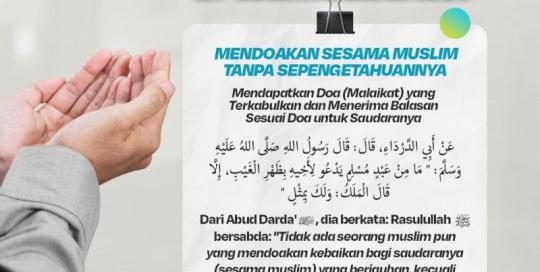 MENDOAKAN SESAMA MUSLIM
TANPA SEPENGETAHUANNYA
Mendapatkan Doa (Malaikat) yang
Terkabulkan dan Menerima Balasan
Sesuai Doa untuk Saudaranya
عَنْ أَبِي الدَّرْدَاءِ، قَالَ: قَالَ رَسُولُ اللهِ صَلَّى اللهُ عَلَيْهِ
وَسَلَّمَ: " مَا مِنْ عَبْدٍ مُسْلِمٍ يَدْعُو لِأَخِيهِ بِظَهْرِ الْغَيْبِ، إِلَّا
قَالَ الْمَلَكُ: وَلَكَ بِمِثْلٍ "
Dari Abud Darda' , dia berkata: Rasulullah ﷺ
bersabda: "Tidak ada seorang muslim pun
yang mendoakan kebaikan bagi saudaranya
(sesama muslim) yang berjauhan, kecuali